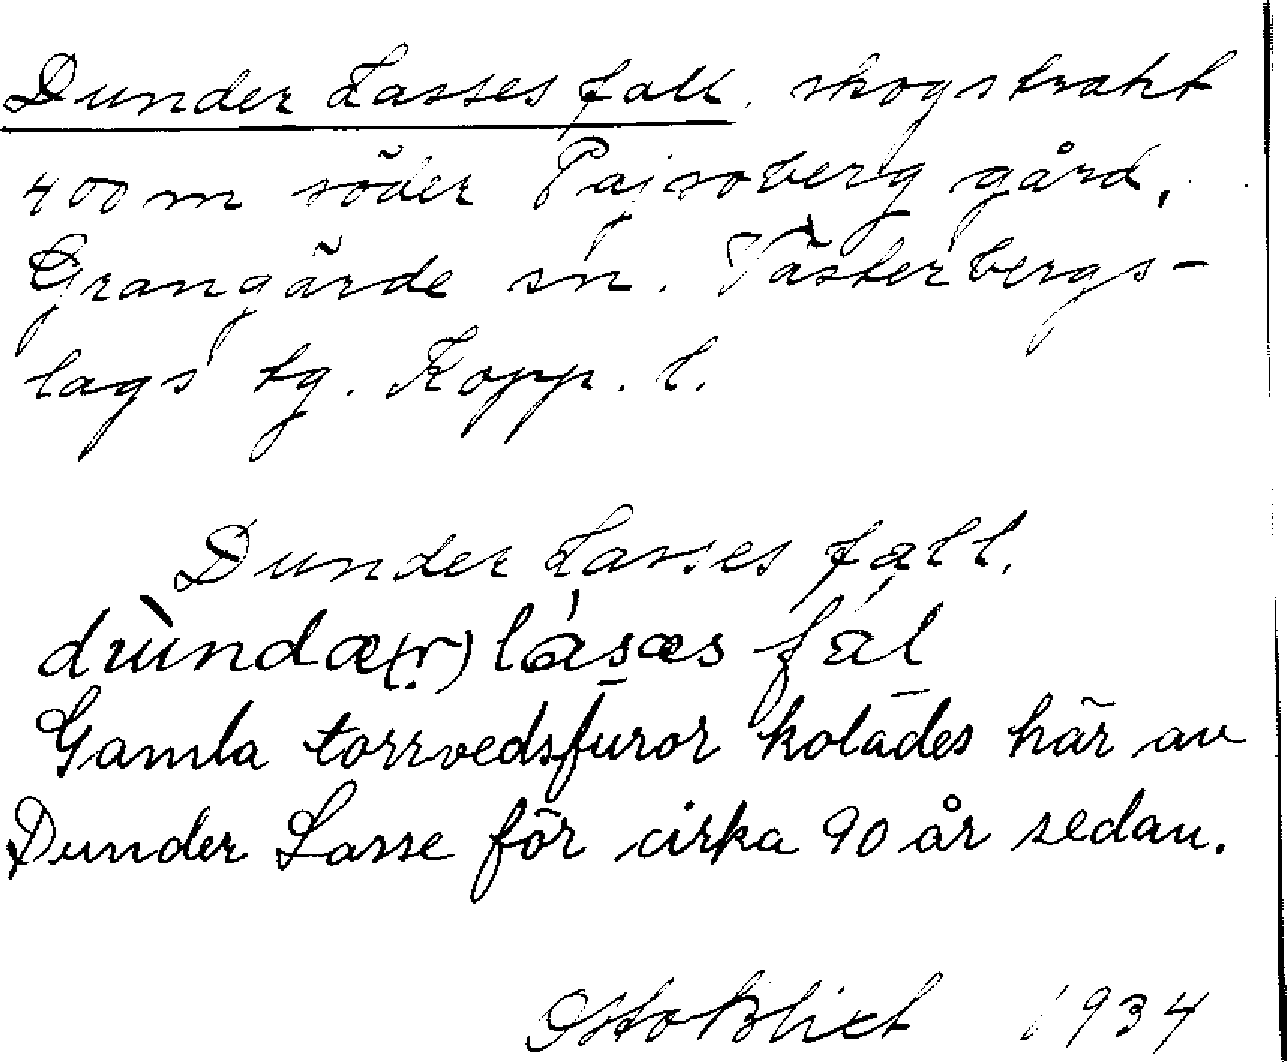 Dunder Lasses fall. skogstrakt
400 m söder Pajsoberg gård,
Grangärde sn. Västerbergs-
lags tg. Kopp. l.
Dunder Lasses fall.
dùndæ(r) lásæs fal
Gamla torrvedsfuror kolades här av
Dunder Lasse för cirka 90 år sedan.
Otto Blixt 1934